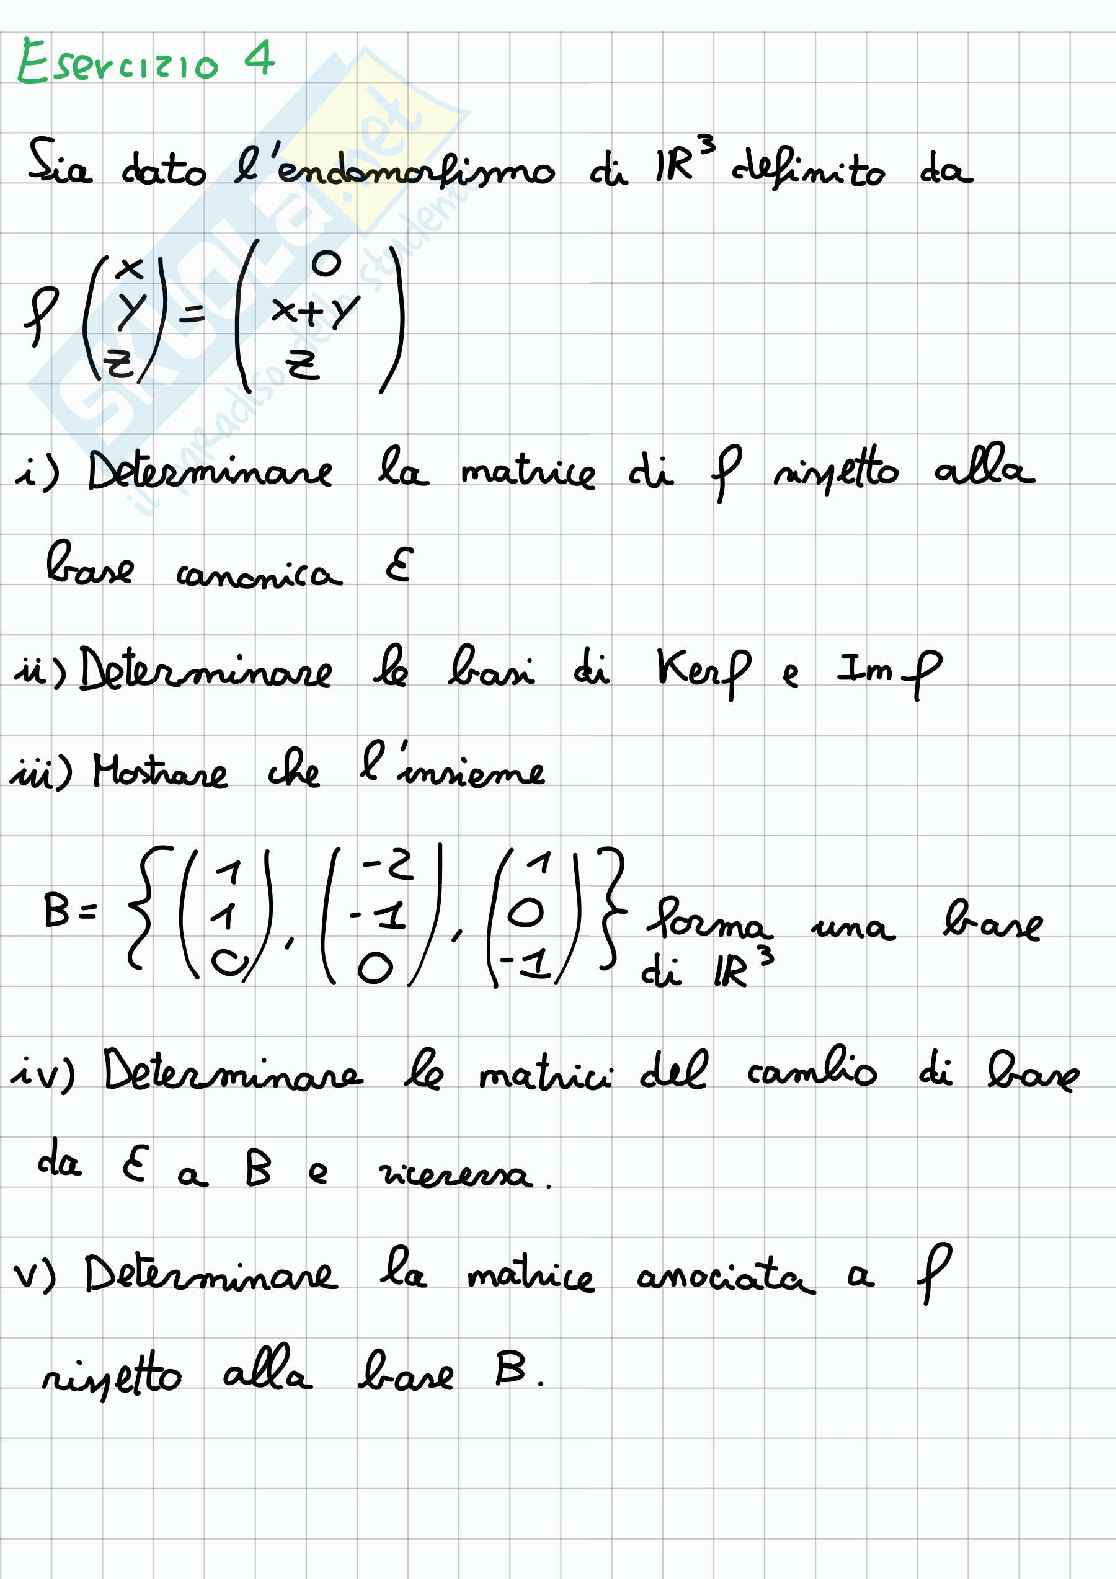 Esercizio 4
Sia dato l'endomorfismo di ℝ³ definito da
f (x y z) = (0 x+y z)
i) Determinare la matrice di f rispetto alla
base canonica ℰ
ii) Determinare le basi di Kerf e Imf
iii) Mostrare che l'insieme
B = {(1 1 0), (-2 -1 0), (1 0 -1)} forma una base
di ℝ³
iv) Determinare le matrici del cambio di base
da ℰ a B e viceversa.
v) Determinare la matrice associata a f
rispetto alla base B.
SKUOLA.net
il paradiso dello studente